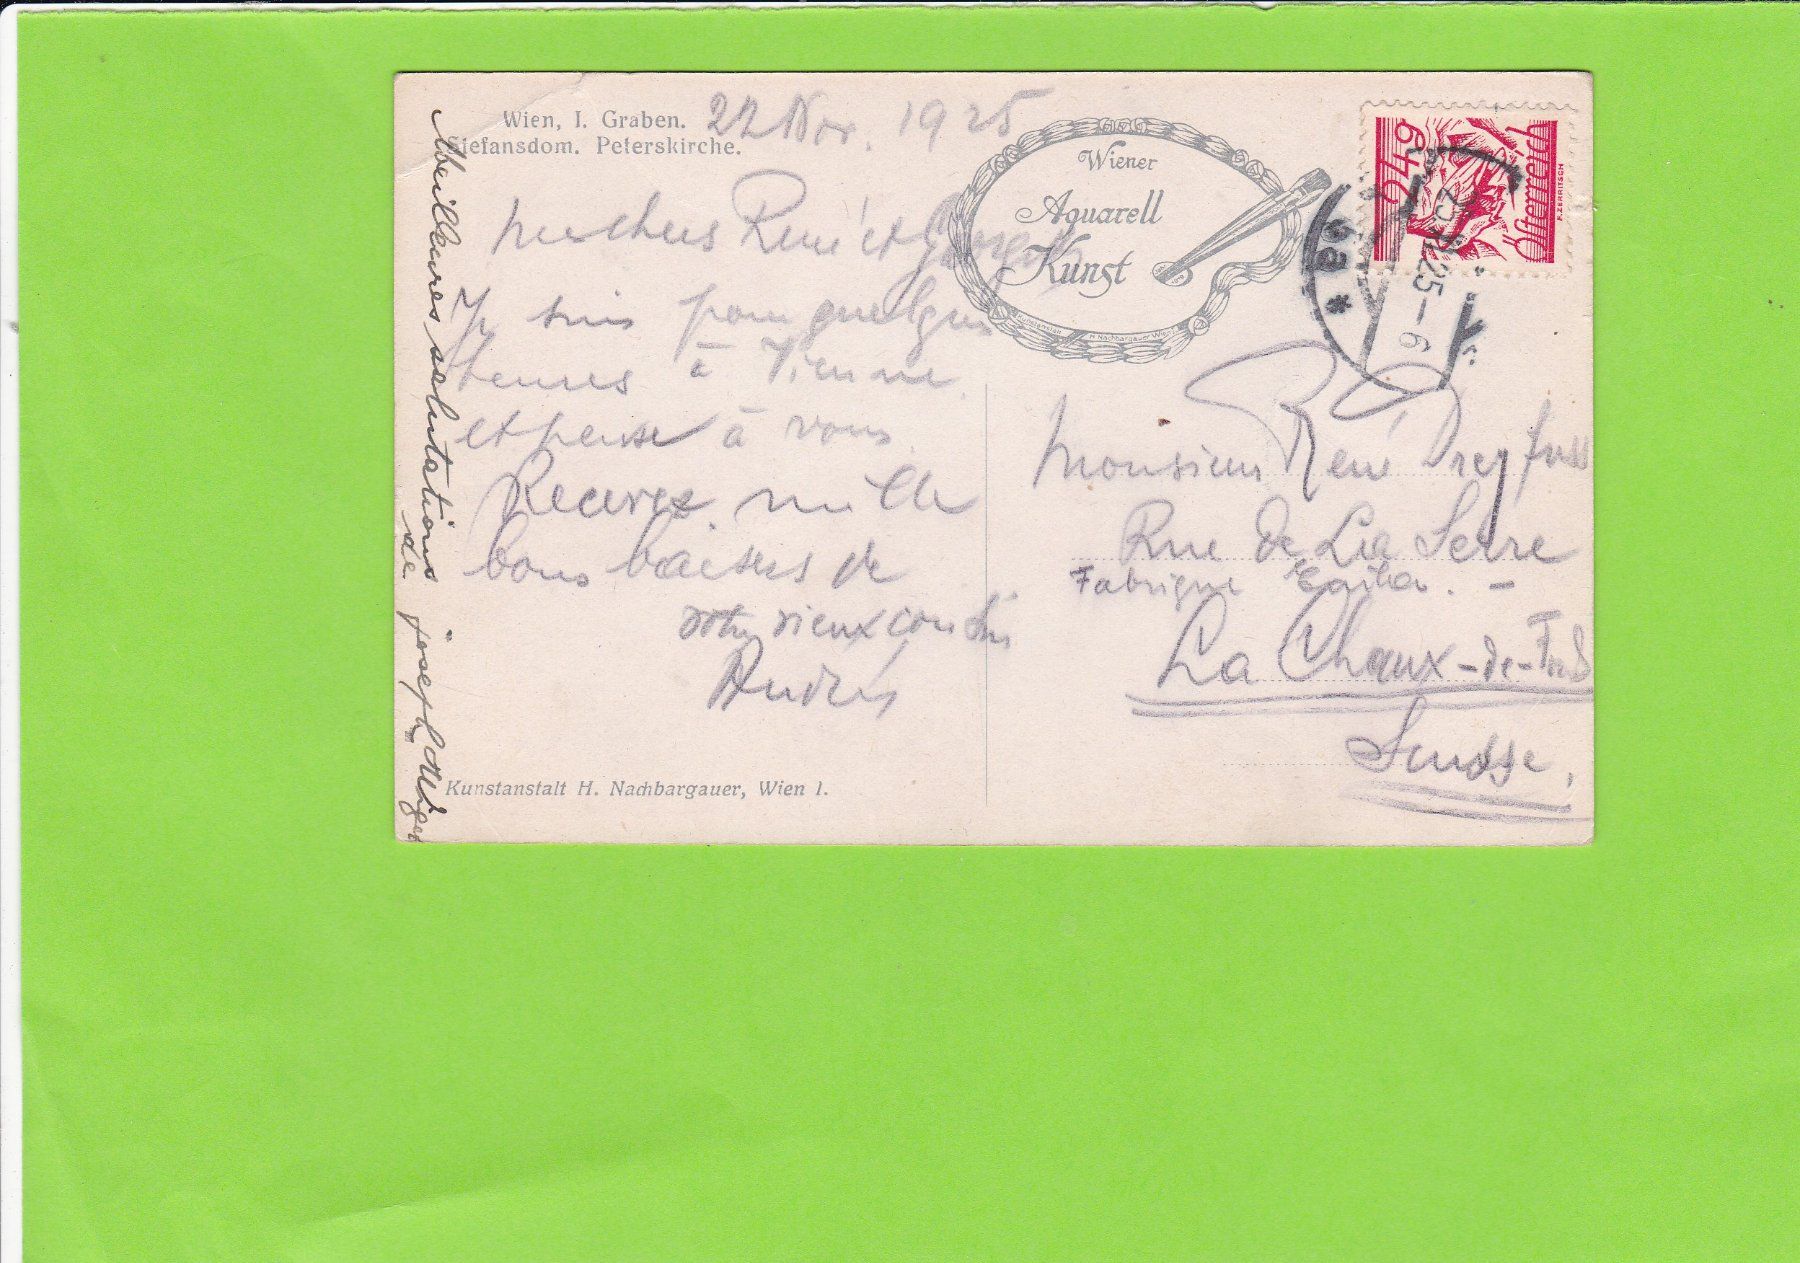 Wien, I. Graben.
Stefansdom. Peterskirche.
22 Nov. 1925
Wiener
Aquarell
Kunst
Kunstanstalt H. Nachbargauer Wien I
Österreich
F. ZERRITSCH
6a *
25 – 6
mes chers René et
Je suis pour quelques
heures à Vienne
et pense à vous
Recevez mille
bons baisers de
votre vieux cousin
André
Meilleures salutations
de josef
Monsieur René Dreyfuss
Rue de La Serre
Fabrique –
La Chaux-de-Fonds
Suisse.
Kunstanstalt H. Nachbargauer, Wien I.